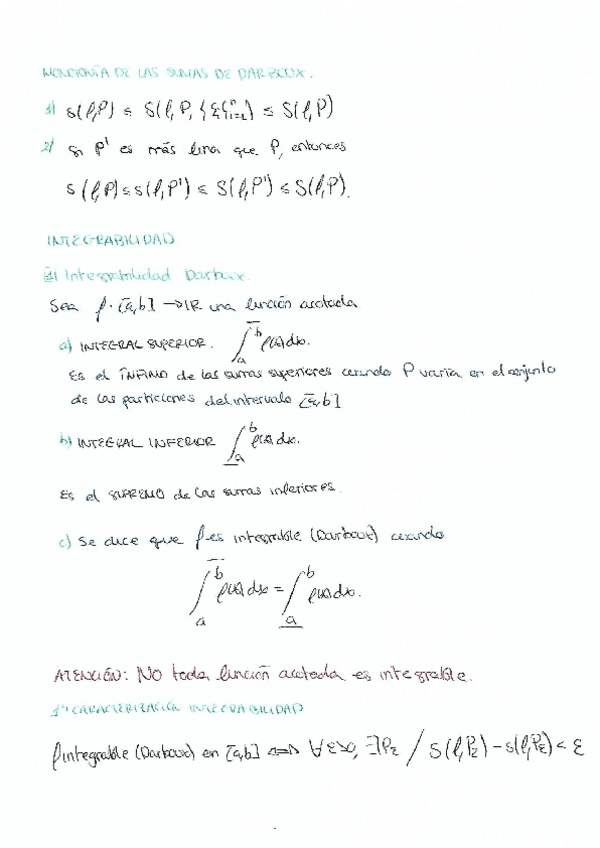 MONOTONÍA DE LAS SUMAS DE DARBOUX.
1) s(f,P) ≤ S(f,P,{ξi}ⁿᵢ₌₁) ≤ S(f,P)
2) Si P' es más fina que P, entonces
s(f,P) ≤ s(f,P') ≤ S(f,P') ≤ S(f,P).
INTEGRABILIDAD
1) Integrabilidad Darboux.
Sea f: [a,b] → IR una función acotada
a) INTEGRAL SUPERIOR. ∫̅ₐᵇ f(x)dx.
Es el ÍNFIMO de las sumas superiores cuando P varía en el conjunto
de las particiones del intervalo [a,b]
b) INTEGRAL INFERIOR ∫̲ₐᵇ f(x)dx.
Es el SUPREMO de las sumas inferiores.
c) Se dice que f es integrable (Darboux) cuando
∫̅ₐᵇ f(x)dx = ∫̲ₐᵇ f(x)dx.
ATENCIÓN: NO toda función acotada es integrable.
1ª CARACTERIZACIÓN INTEGRABILIDAD
f integrable (Darboux) en [a,b] ⟺ ∀ε>0, ∃Pε / S(f,Pε) - s(f,Pε) < ε